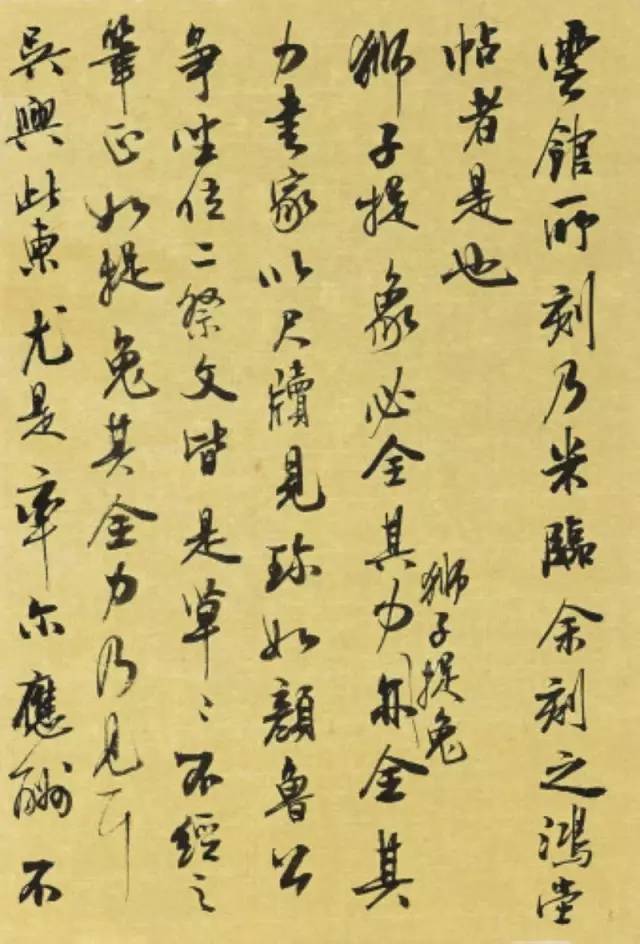 雲館所刻乃米臨余刻之鴻堂
帖者是也
獅子捉象必全其力亦全其
獅子捉兔
力書家以尺牘見珍如顏魯公
爭坐位二祭文皆是草〻不經之
筆正如捉兔其全力乃見耳
吳興此柬尤是率尔應酬不